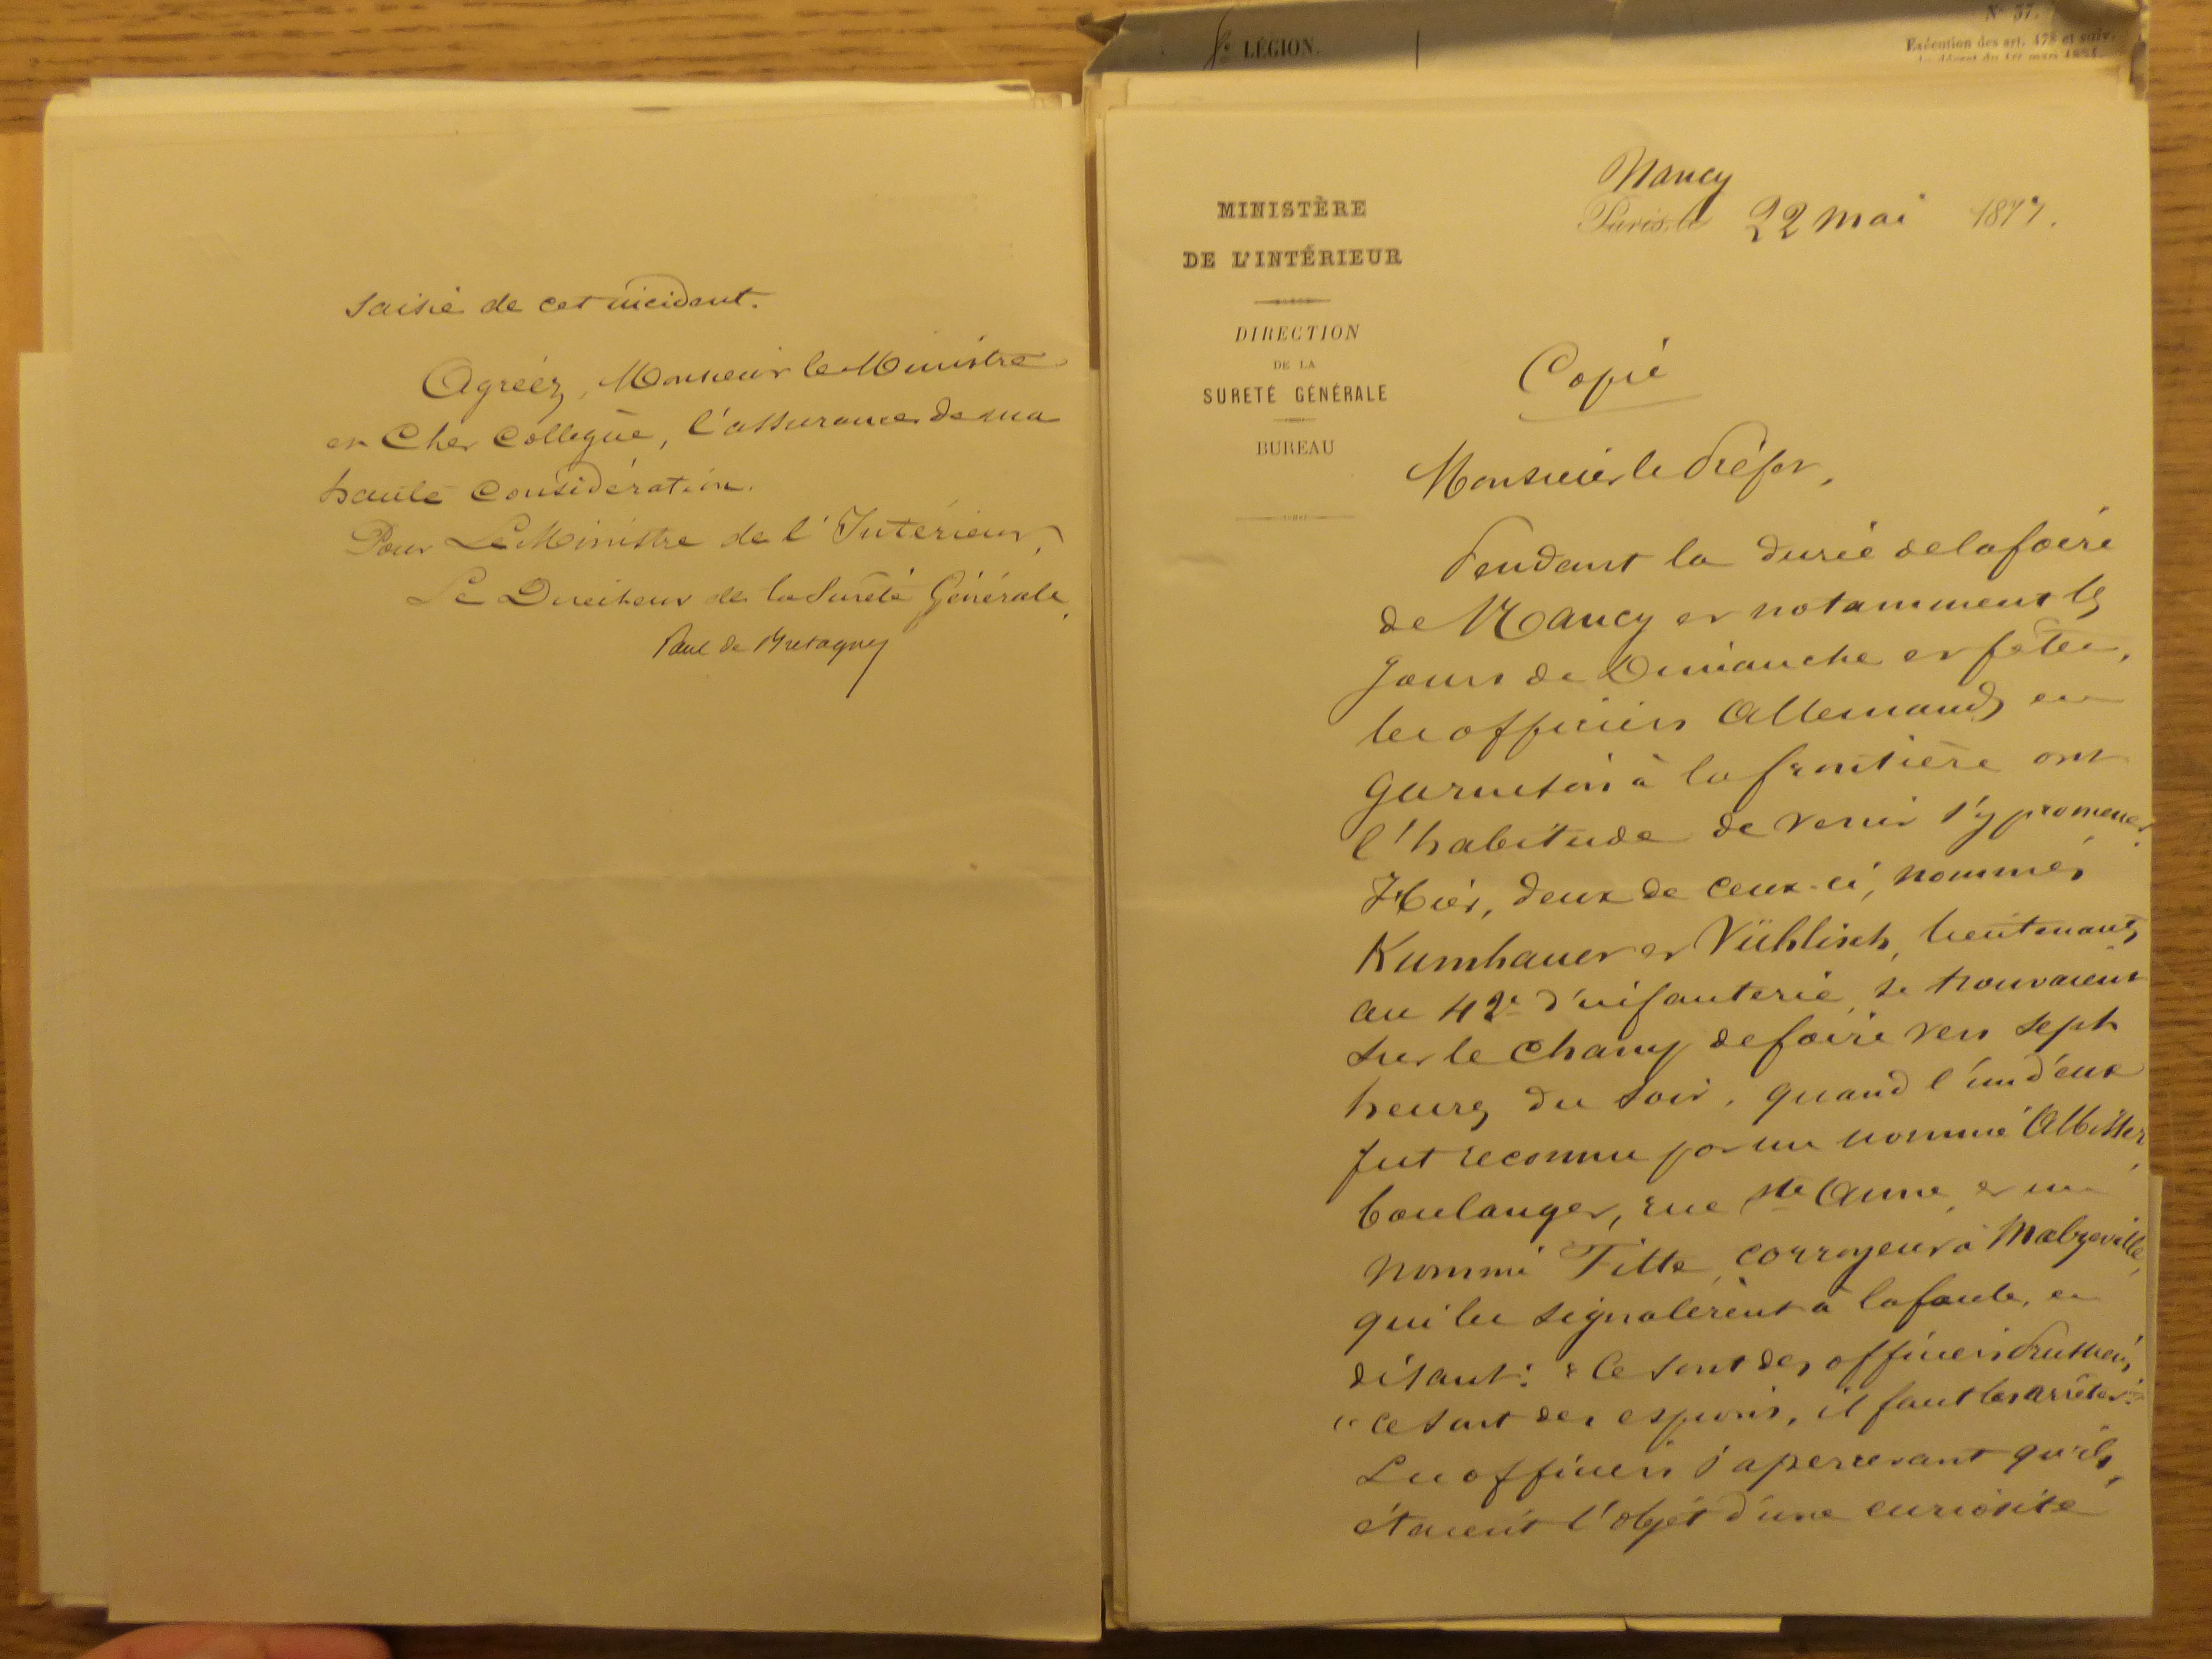 saisie de cet incident.
Agréez, Monsieur le Ministre
et Cher Collègue, l'assurance de ma
haute Considération.
Pour Le Ministre de l'Intérieur,
Le Directeur de la Sureté Générale,
Paul de
8e LÉGION.
N° 37.
Exécution des art. 478 et suiv.
du décret du 1er mars 1854.
MINISTÈRE
DE L'INTÉRIEUR
DIRECTION
DE LA
SURETÉ GÉNÉRALE
BUREAU
Nancy
Paris, le 22 mai 1877.
Copie
Monsieur le Préfet,
Pendant la durée de la foire
de Nancy et notamment les
jours de Dimanche et fêtes,
les officiers Allemands en
garnison à la frontière ont
l'habitude de venir s'y promener.
Hier, deux de ceux-ci, nommés
Kumhauer et Vühlisch, lieutenants
au 42e d'infanterie, se trouvaient
sur le champ de foire vers sept
heures du soir, quand l'un d'eux
fut reconnu par un nommé Albisser,
boulanger, rue Ste Anne, et un
nommé Fitte, corroyeur à Malzéville,
qui les signalèrent à la foule, en
disant: « Ce sont des officiers Prussiens,
« ce sont des espions, il faut les arrêter.»
Les officiers s'apercevant qu'ils
étaient l'objet d'une curiosité